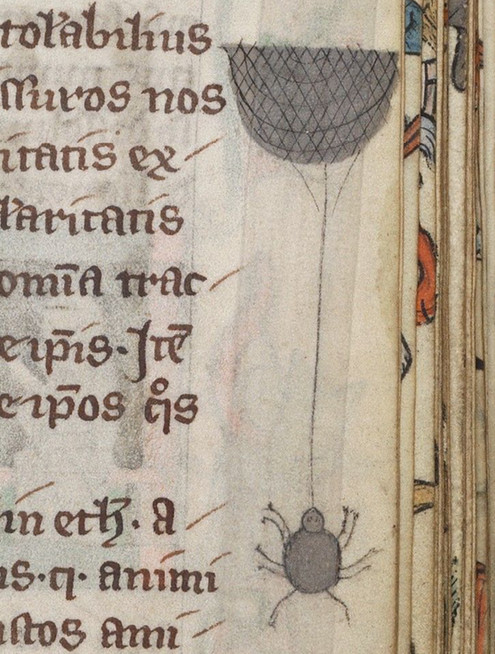 tolabilius
ssuros nos
itatis ex
laritatis
omīa trac
e ip̄is. Itē
e ip̄os qͦs
in eth. a
us. q. animi
istos ami